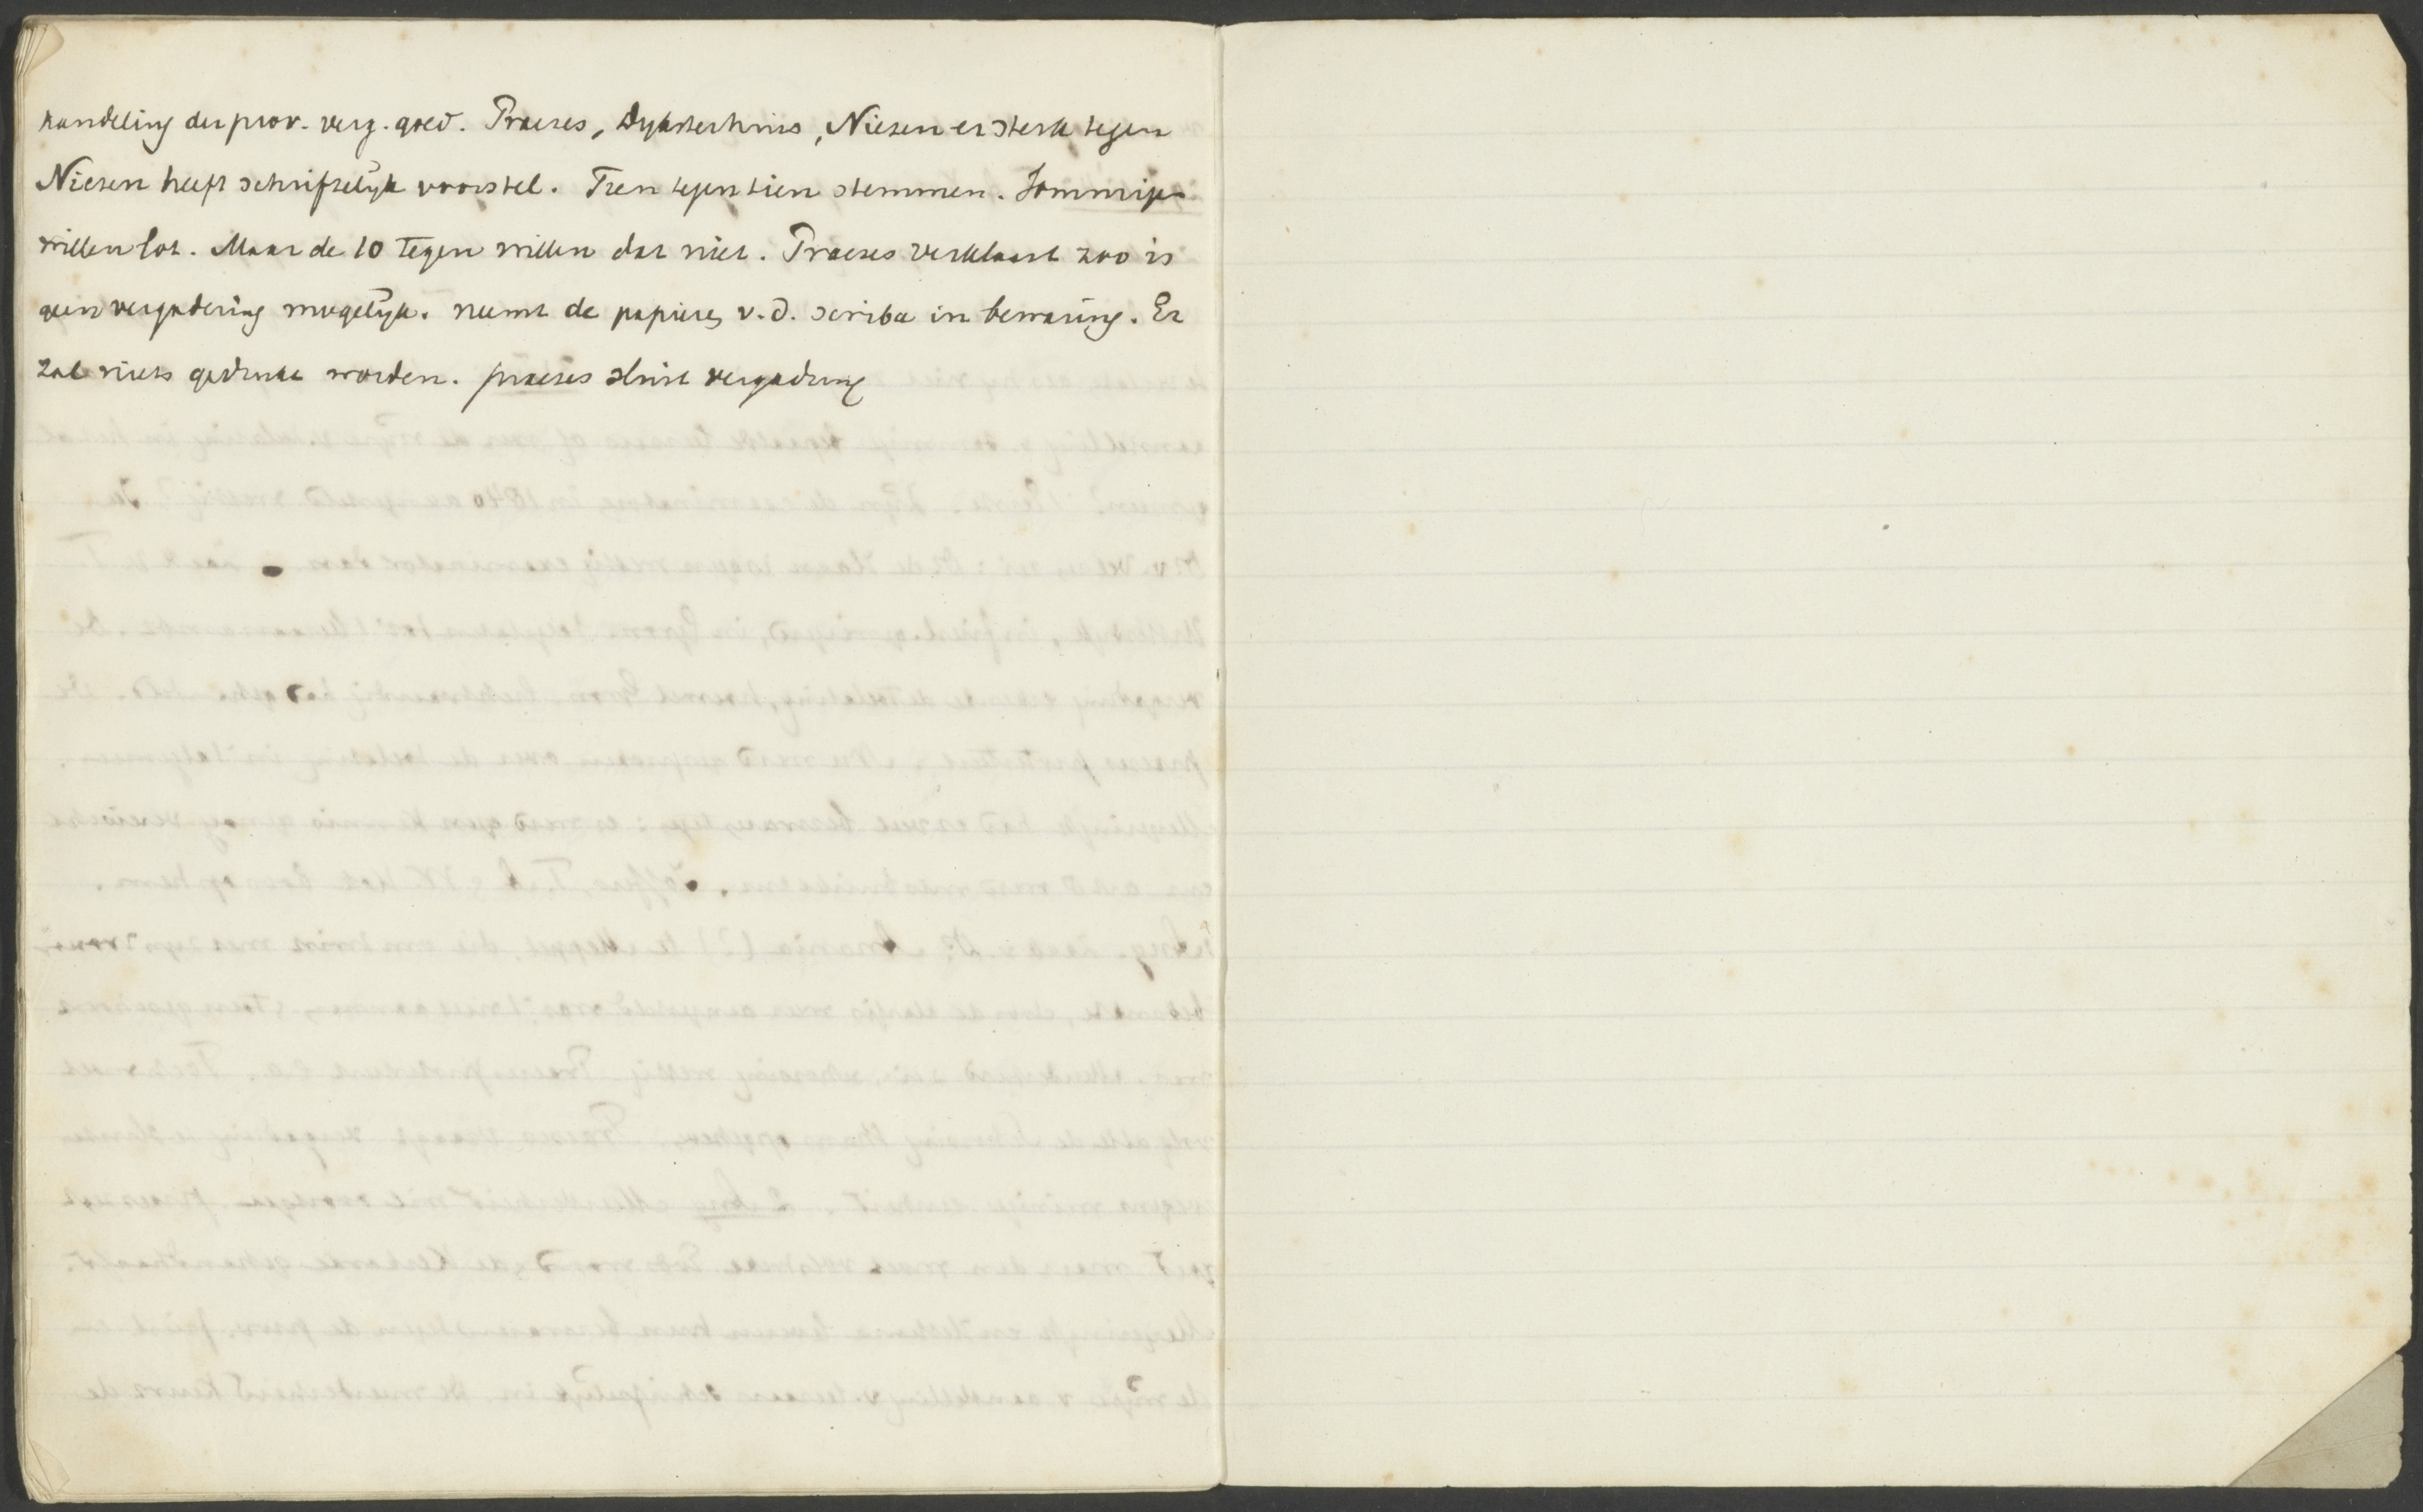 handeling der prov. verg. goed. Praeses, Dyksterhuis, Niezen er sterk tegen
Niezen heeft schriftelijk voorstel. Tien tegen tien stemmen. Sommige
willen lot. Maar de 10 tegen willen dat niet. Praeses verklaart zoo is
geen vergadering mogelijk. neemt de papieren v.d. scriba in bewaring. Er
zal niets gedrukt worden. praeses sluit vergadering